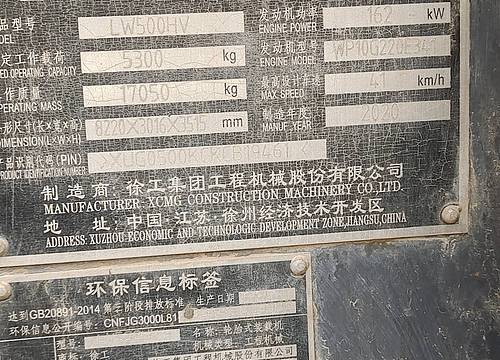 品型号 LW500HV 发动机功率 162 kW
ODEL ENGINE POWER
定工作载荷 5300 kg 发动机型号 WP10G220E341
ED OPERATING CAPACITY ENGINE MODEL
作质量 17050 kg 最高设计车速 41 km/h
PERATING MASS MAX SPEED
形尺寸(长×宽×高) 8220×3016×3515 mm 制造年度 2020
DIMENSION(L×W×H) MANUF YEAR
产品识别代码(PIN)
PRODUCT IDENTIFICATION NUMBER
制造商:徐工集团工程机械股份有限公司
MANUFACTURER: XCMG CONSTRUCTION MACHINERY CO.,LTD.
地 址:中国·江苏·徐州经济技术开发区
ADDRESS: XUZHOU ECONOMIC AND TECHNOLOGIC DEVELOPMENT ZONE,JIANGSU,CHINA
环保信息标签
达到GB20891-2014 第三阶段排放标准 生产日期
环保信息公开编号: CNFJG3000L81
型 名称:轮胎式装载机
商标:徐工 机械类型:工程机械
集团工程机械股份有限公司